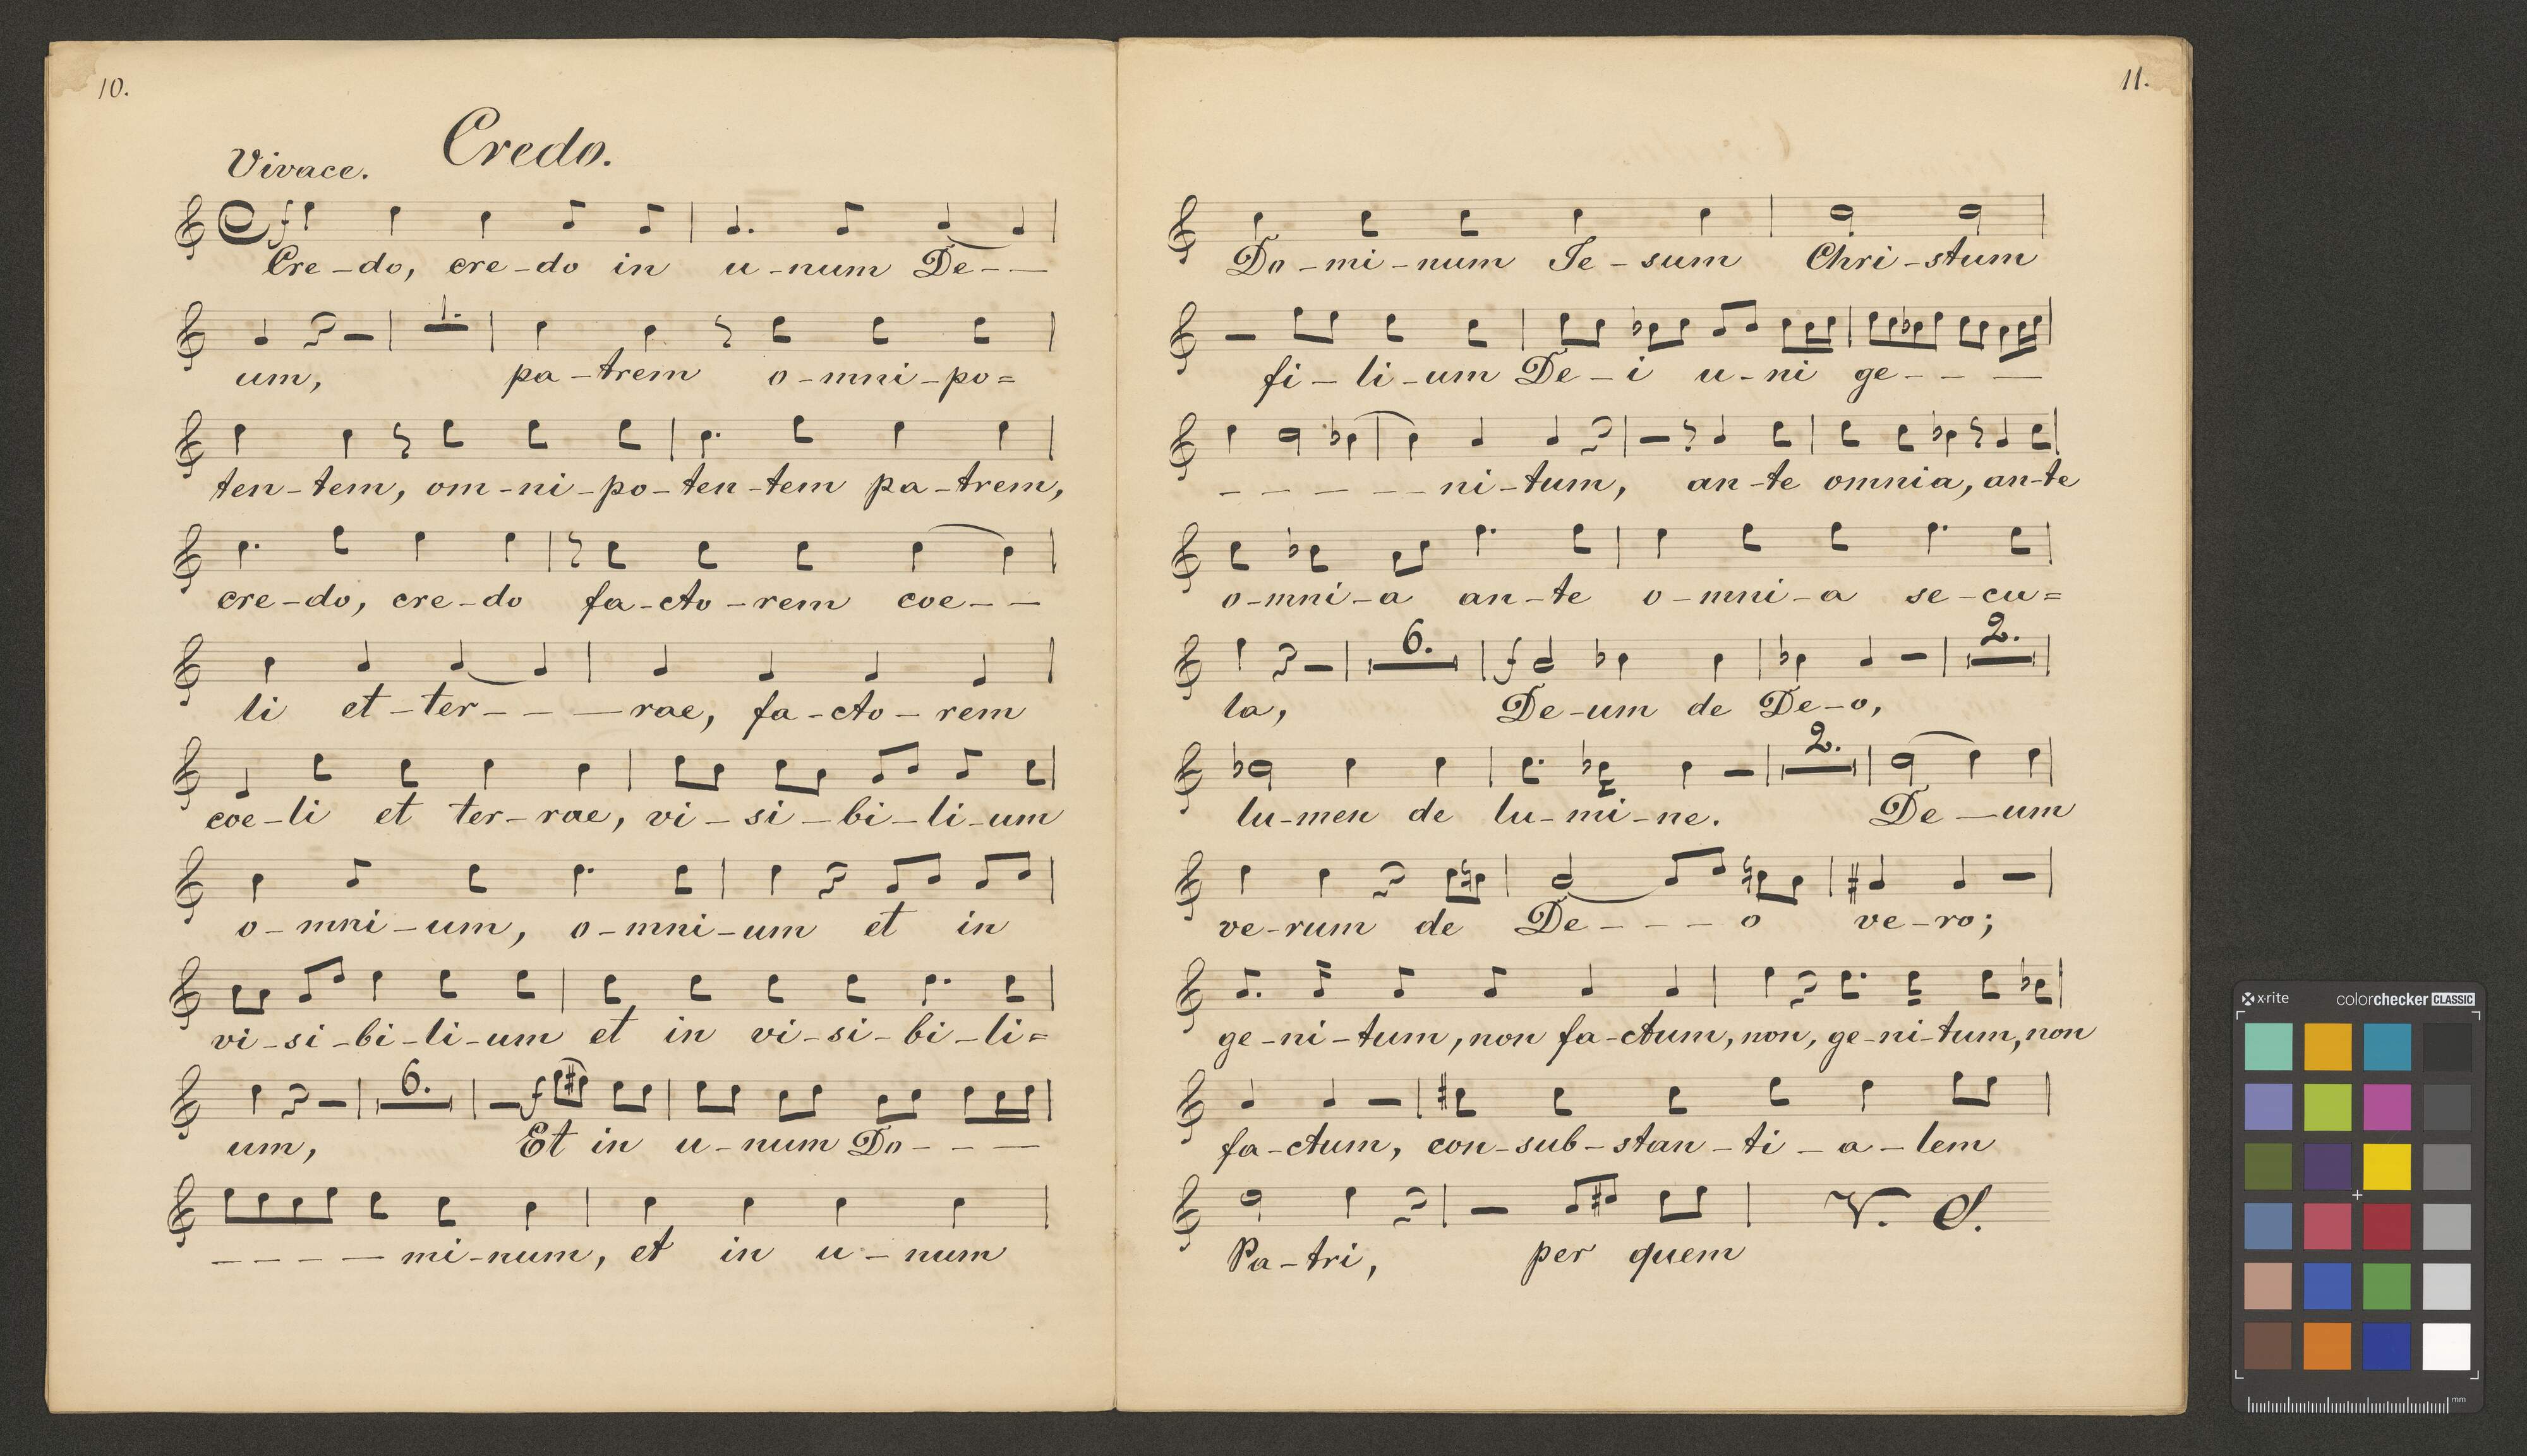 10.
Credo.
Vivace.
f
Cre-do, cre-do in u-num De--
1.
um, pa-trem o-mni-po=
ten-tem, om-ni-po-ten-tem pa-trem,
cre-do, cre-do fa-cto-rem coe--
li et-ter---rae, fa-cto-rem
coe-li et ter-rae, vi-si-bi-li-um
o-mni-um, o-mni-um et in
vi-si-bi-li-um et in vi-si-bi-li=
6. f
um, Et in u-num Do---
----mi-num, et in u-num
11.
Do-mi-num Je-sum Chri-stum
fi-li-um De-i u-ni ge---
-----ni-tum, an-te omnia, an-te
o-mni-a an-te o-mni-a se-cu=
6. f 2.
la, De-um de De-o,
2.
lu-men de lu-mi-ne. De-um
ve-rum de De---o ve-ro;
ge-ni-tum, non fa-ctum, non, ge-ni-tum, non
fa-ctum, con-sub-stan-ti-a-lem
V. S.
Pa-tri, per quem
x-rite colorchecker CLASSIC
mm